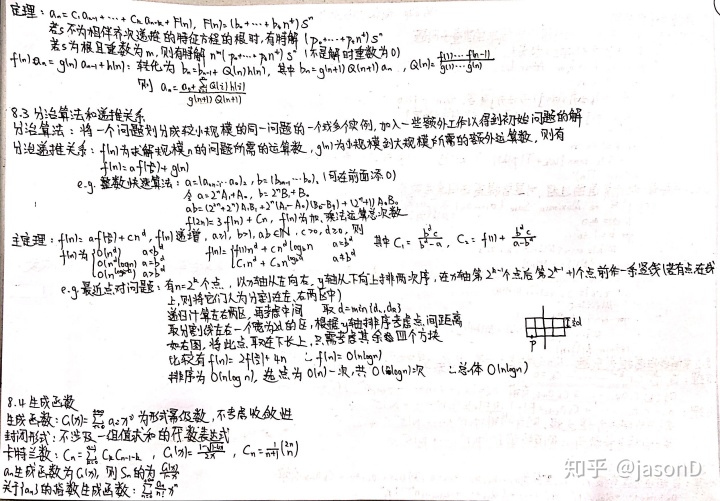 定理: aₙ = C₁aₙ₋₁ + ⋯ + Cₖaₙ₋ₖ + F(n), F(n) = (b₀ + ⋯ + bₜnᵗ) Sⁿ
若S不为相伴齐次递推的特征方程的根时, 有特解 (p₀ + ⋯ + pₜnᵗ) Sⁿ
若S为根且重数为m, 则有特解 nᵐ(p₀ + ⋯ + pₜnᵗ) Sⁿ (不是解时重数为0)
f(n)aₙ = g(n)aₙ₋₁ + h(n): 转化为 bₙ = bₙ₋₁ + Q(n)h(n), 其中 bₙ = g(n+1)Q(n+1)aₙ , Q(n) = f(1)⋯f(n-1) / g(1)⋯g(n)
则 aₙ = (a₀ + Σ Q(i)h(i)) / (g(n+1)Q(n+1))
8.3 分治算法和递推关系
分治算法: 将一个问题划分成较小规模的同一问题的一个或多个实例, 加入一些额外工作以得到初始问题的解
分治递推关系: f(n)为求解规模n的问题所需的运算数, g(n)为小规模到大规模所需的额外运算数, 则有
f(n) = a f(n/b) + g(n)
e.g. 整数快速算法: a = (a₂ₙ₋₁…a₀)₂ , b = (b₂ₙ₋₁…b₀)₂ (可在前面添0)
令 a = 2ⁿA₁ + A₀ , b = 2ⁿB₁ + B₀
ab = (2²ⁿ + 2ⁿ) A₁B₁ + 2ⁿ(A₁ - A₀)(B₀ - B₁) + (2ⁿ + 1) A₀B₀
f(2n) = 3f(n) + Cn , f(n)为加、乘法运算总次数
主定理: f(n) = a f(n/b) + cnᵈ , f(n)递增, a≥1, b>1, a,b∈N, c>0, d≥0, 则
f(n)为 { O(nᵈ) a<bᵈ f(n) = { f(1)nᵈ + cnᵈ log_b n a=bᵈ 其中 C₁ = bᵈc / (bᵈ-a) , C₂ = f(1) + bᵈc / (a-bᵈ)
O(nᵈ log n) a=bᵈ C₁nᵈ + C₂n^(log_b a) a≠bᵈ
O(n^(log_b a)) a>bᵈ
e.g. 最近点对问题: 有n=2ᵏ个点, 以x轴从左向右, y轴从下向上排两次序, 在x轴第2ᵏ⁻¹个点后第2ᵏ⁻¹+1个点前作一条竖线(若有点在线
上, 则将它们人为分割在左、右两区中)
递归计算左右两区, 再考虑中间 取 d = min{d_L, d_R}
取分割线左右一个宽为2d的区, 根据y轴排序考虑点间距离
如右图, 将此点取在下长上, 只需考虑其余 四个方块
比较有 f(n) = 2f(n/2) + 4n ∴ f(n) = O(n log n)
排序为 O(n log n), 选点为 O(n) 一次, 共 O(log n)次 ∴ 总体 O(n log n)
2d
p
8.4 生成函数
生成函数: G(x) = Σ aₙxⁿ 为形式幂级数, 不考虑收敛性
封闭形式: 不涉及一组值求和的代数表达式
卡特兰数: Cₙ = Σ CₖCₙ₋₁₋ₖ , G(x) = (1-√(1-4x)) / 2x , Cₙ = 1/(n+1) (2n n)
aₙ生成函数为G(x), 则Sₙ的为 G(x)/(1-x)
关于{aₙ}的指数生成函数: Σ aₙ/n! xⁿ
知乎 @jasonD